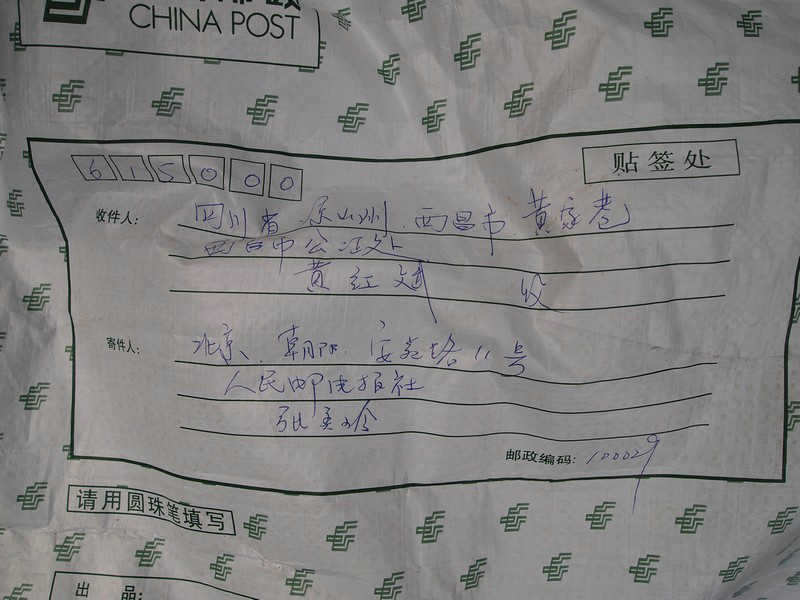 CHINA POST
贴签处
615000
收件人: 四川省 凉山州 西昌市 黄家巷
西昌市公证处
黄红斌 收
寄件人: 北京 朝阳 安苑路11号
人民邮电报社
张孟玲
邮政编码: 100029
请用圆珠笔填写
出 品: